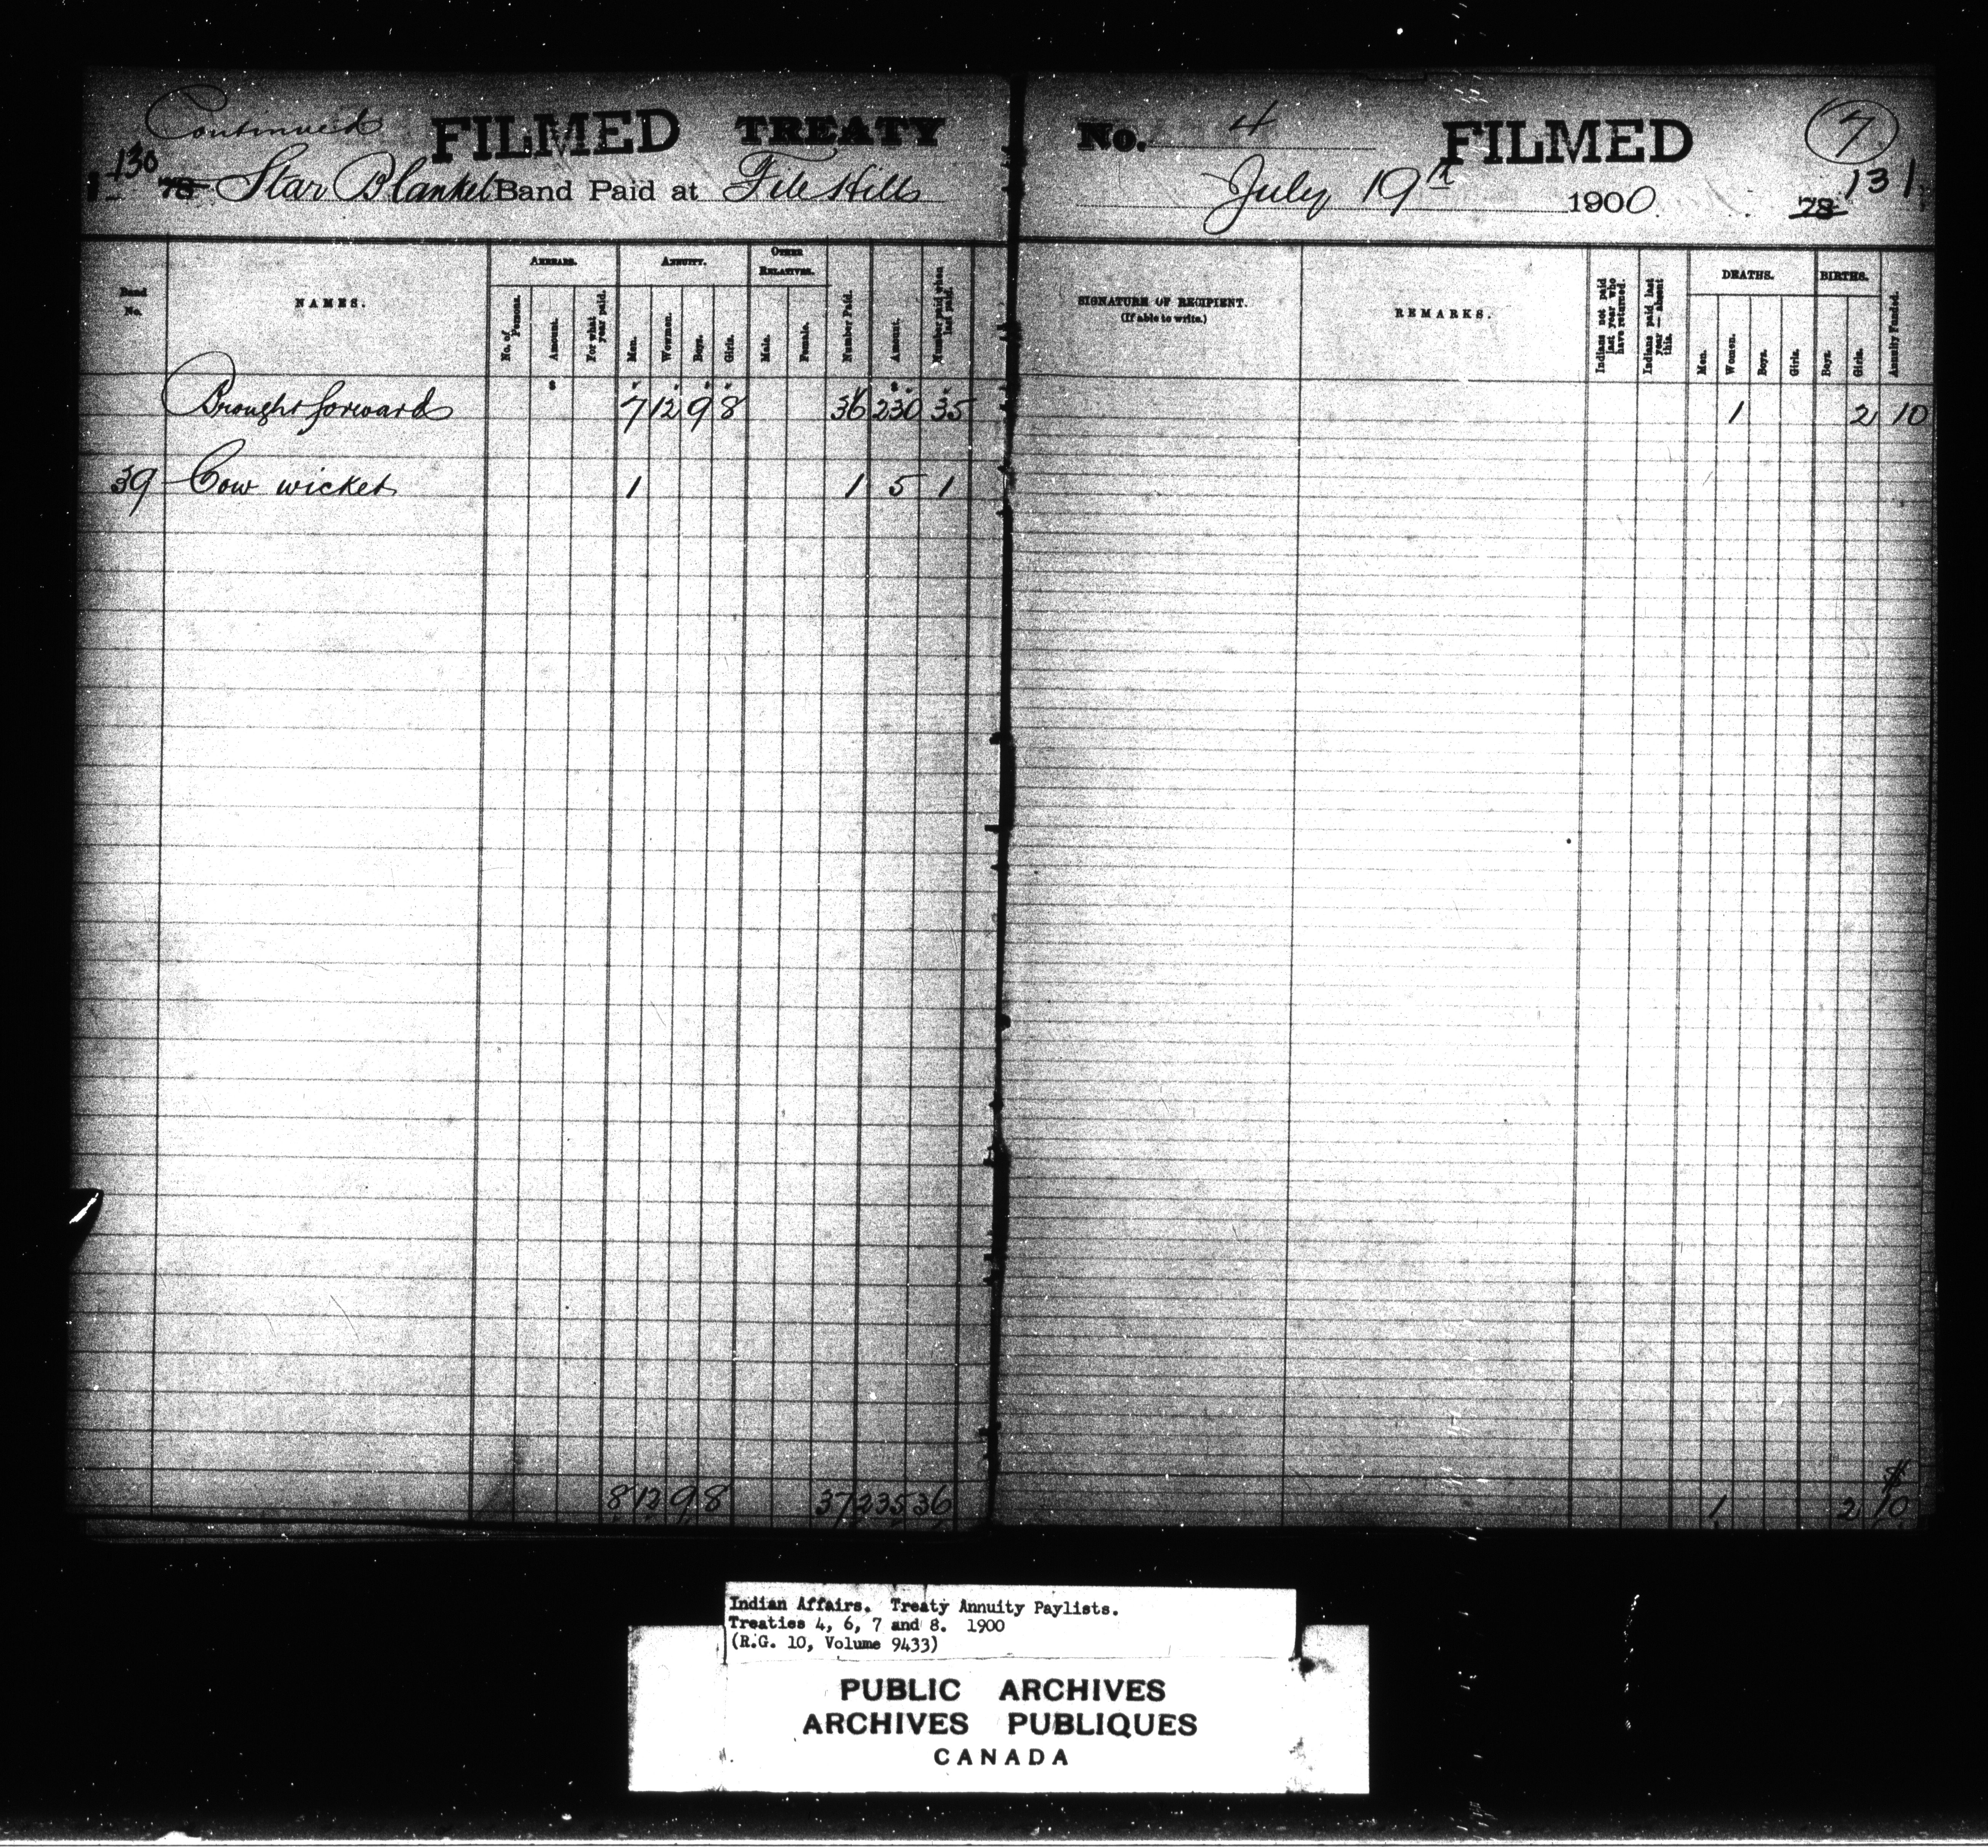 Continued FILMED TREATY No. 4 FILMED 7
130 78 Star Blanket Band Paid at File Hills July 19th 1900 78 131
Band No.
NAMES.
ARREARS.
No. of Persons.
Amount.
For what year paid.
ANNUITY.
Men.
Women.
Boys.
Girls.
OTHER RELATIVES.
Male.
Female.
Number Paid.
Amount.
Number paid when last paid.
SIGNATURE OF RECIPIENT.
(If able to write.)
REMARKS.
Indians not paid last year who have returned.
Indians paid last year — absent this.
DEATHS.
Men.
Women.
Boys.
Girls.
BIRTHS.
Boys.
Girls.
Annuity Funded.
Brought forward 7 12 9 8 36 230 35 1 2 10
39 Cow wicket 1 1 5 1
8 12 9 8 37 235 36 1 2 $10
Indian Affairs. Treaty Annuity Paylists.
Treaties 4, 6, 7 and 8. 1900
(R.G. 10, Volume 9433)
PUBLIC ARCHIVES
ARCHIVES PUBLIQUES
CANADA